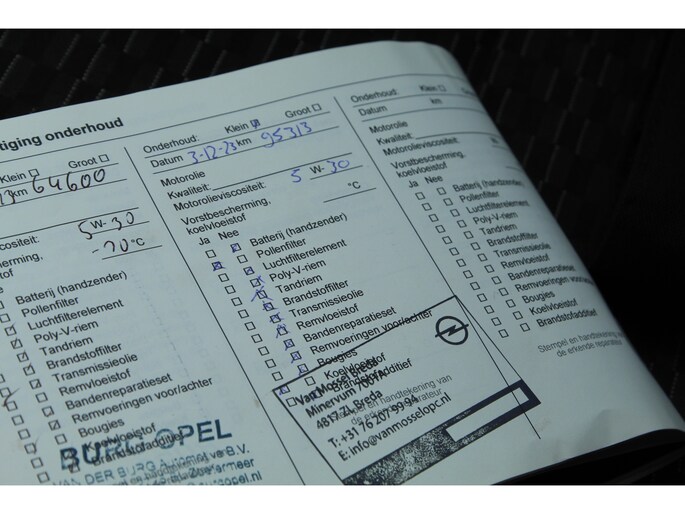 tiging onderhoud
Klein Groot
km 64600
cositeit: 5 W- 30
herming,
stof -20 °C
Batterij (handzender)
Pollenfilter
Luchtfilterelement
Poly-V-riem
Tandriem
Brandstoffilter
Transmissieolie
Remvloeistof
Bandenreparatieset
Remvoeringen voor/achter
Bougies
Koelvloeistof
Brandstofadditief
BURG OPEL
VAN DER BURG B.V.
Onderhoud: Klein Groot
Datum 3-12-23 km 95313
Motorolie
Kwaliteit:
Motorolieviscositeit: 5 W- 30
Vorstbescherming,
koelvloeistof °C
Ja Nee
Batterij (handzender)
Pollenfilter
Luchtfilterelement
Poly-V-riem
Tandriem
Brandstoffilter
Transmissieolie
Remvloeistof
Bandenreparatieset
Remvoeringen voor/achter
Bougies
Koelvloeistof
Brandstofadditief
Stempel en handtekening van
de erkende reparateur
Van Mossel Breda
Minervum 7001A
4817 ZL Breda
T: +31 76 207 99 94
E: info@vanmosselopc.nl
Onderhoud: Klein Groot
Datum km
Motorolie
Kwaliteit:
Motorolieviscositeit: W-
Vorstbescherming,
koelvloeistof
Ja Nee
Batterij (handzender)
Pollenfilter
Luchtfilterelement
Poly-V-riem
Tandriem
Brandstoffilter
Transmissieolie
Remvloeistof
Bandenreparatieset
Remvoeringen voor/achter
Bougies
Koelvloeistof
Brandstofadditief
Stempel en handtekening van
de erkende reparateur